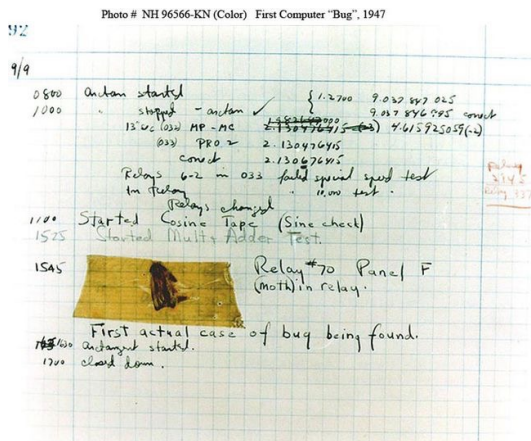 Photo # NH 96566-KN (Color) First Computer “Bug”, 1947
92
9/9
0800 antan started { 1.2700 9.037 847 025
1000 " stopped - antan ✓ 9.037 846 995 correct
13"uc (032) MP-MC 2.130476415 (-3) 4.615925059(-2)
(033) PRO 2 2.130476415
correct 2.130676415
Relays 6-2 in 033 failed special speed test
in relay " 10,000 test.
Relays changed
1100 Started Cosine Tape (Sine check)
1525 Started Mult+Adder Test.
1545 Relay #70 Panel F
(moth) in relay.
First actual case of bug being found.
1630 antangent started.
1700 closed down.